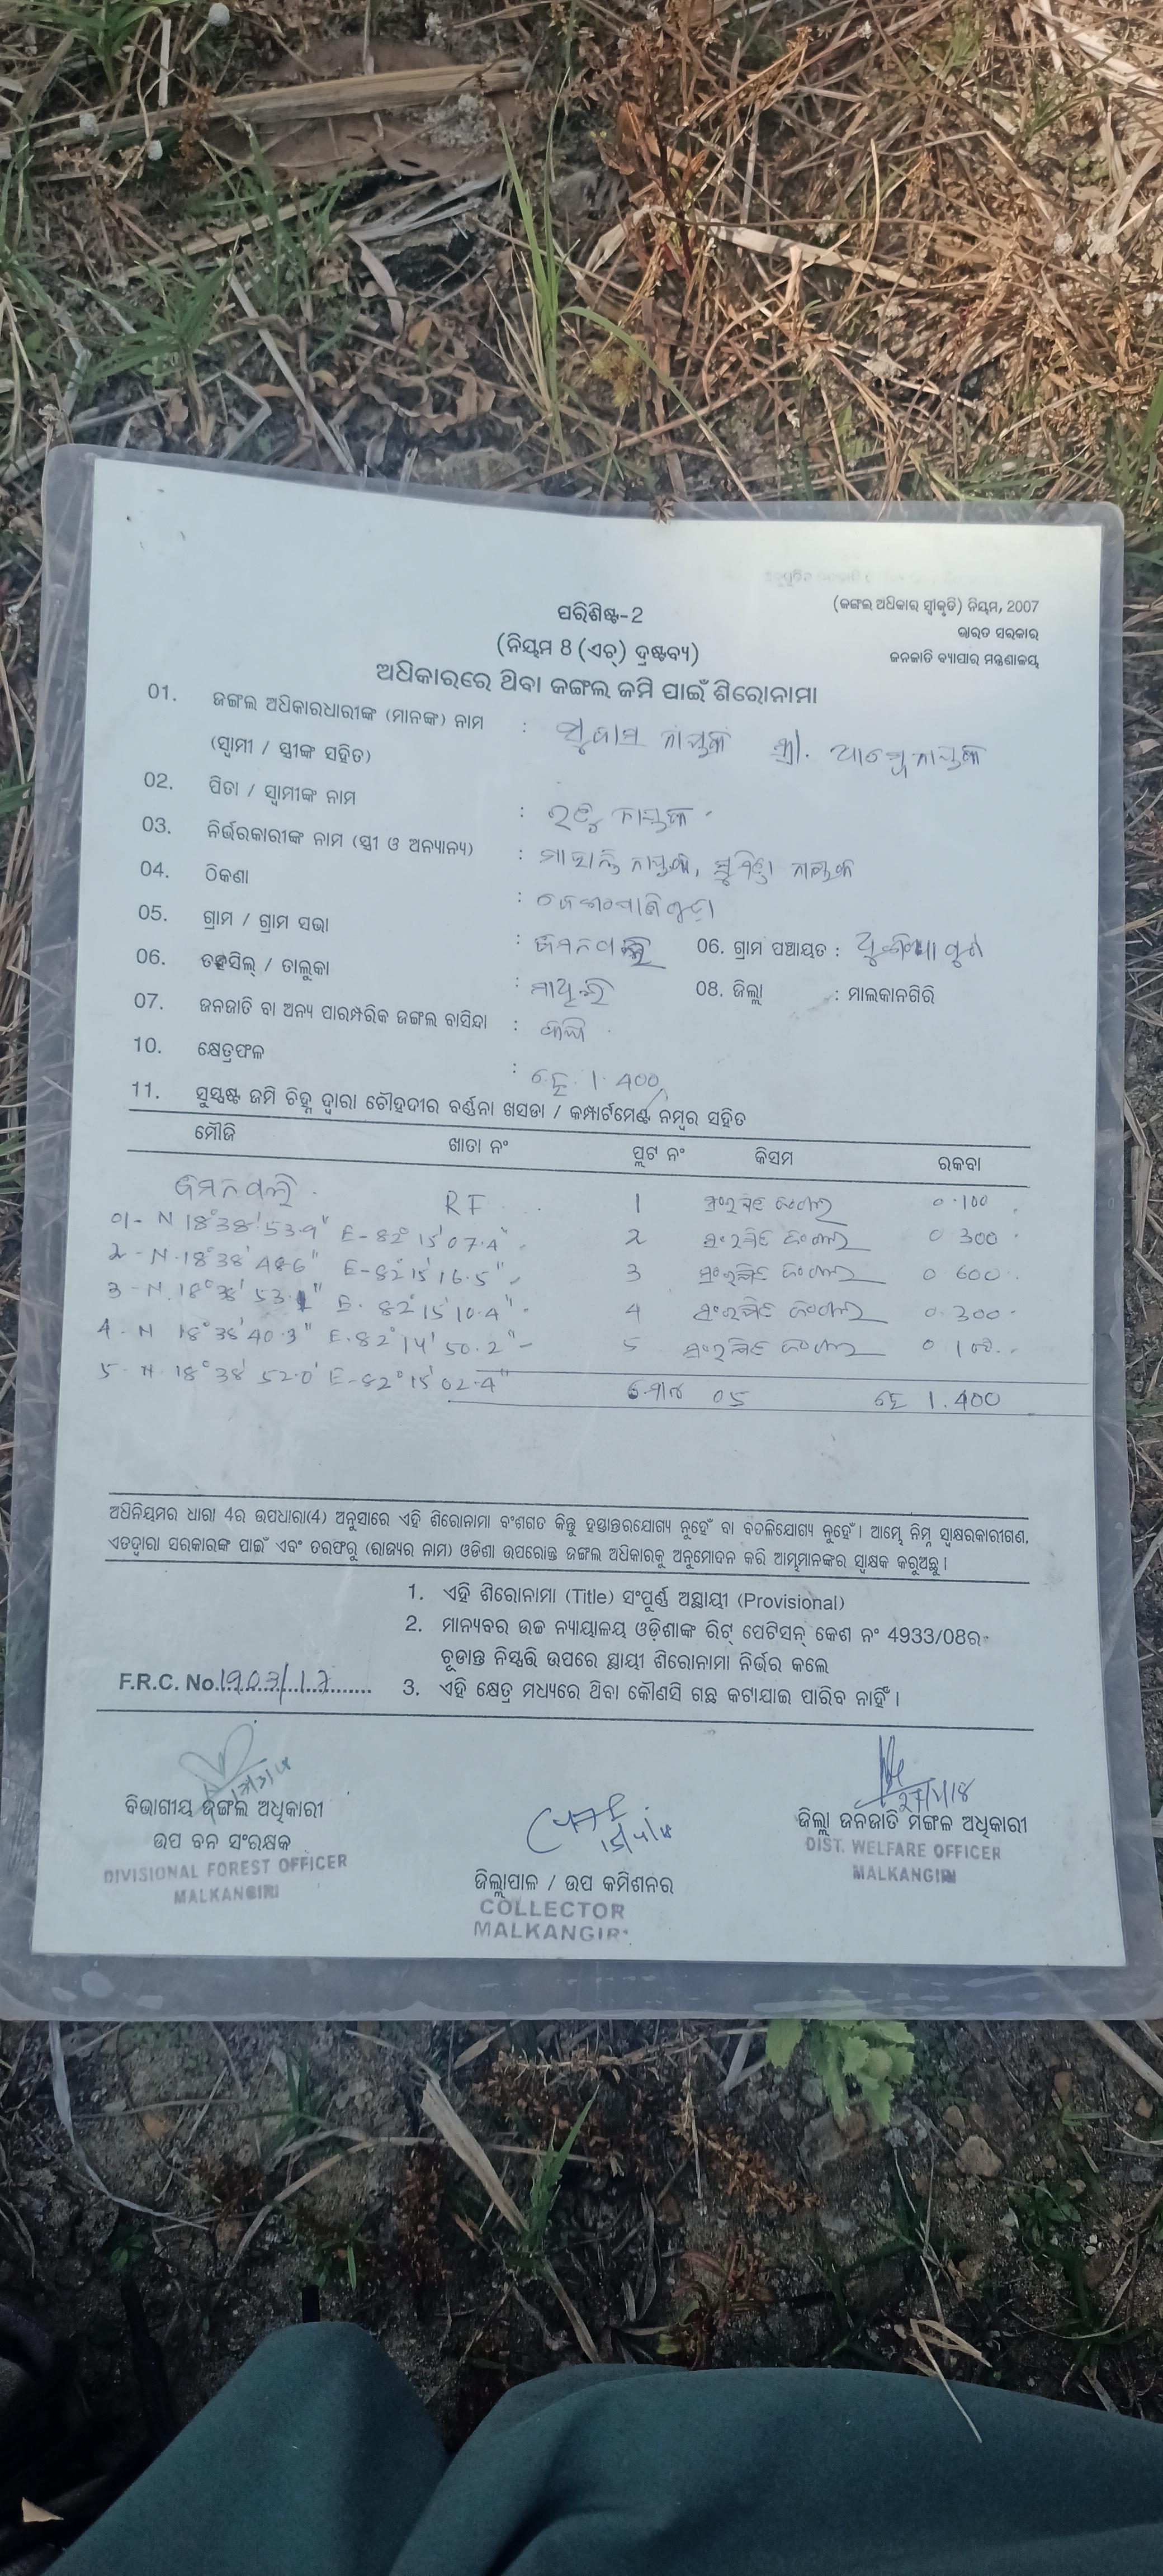 (ଜଙ୍ଗଲ ଅଧିକାର ସ୍ୱୀକୃତି) ନିୟମ, 2007
ପରିଶିଷ୍ଟ-2
ଭାରତ ସରକାର
(ନିୟମ 8 (ଏଚ୍) ଦ୍ରଷ୍ଟବ୍ୟ)
ଜନଜାତି ବ୍ୟାପାର ମନ୍ତ୍ରଣାଳୟ
ଅଧିକାରରେ ଥିବା ଜଙ୍ଗଲ ଜମି ପାଇଁ ଶିରୋନାମା
01. ଜଙ୍ଗଲ ଅଧିକାରଧାରୀଙ୍କ (ମାନଙ୍କ) ନାମ :
(ସ୍ୱାମୀ / ସ୍ତ୍ରୀଙ୍କ ସହିତ)
02. ପିତା / ସ୍ୱାମୀଙ୍କ ନାମ :
03. ନିର୍ଭରକାରୀଙ୍କ ନାମ (ସ୍ତ୍ରୀ ଓ ଅନ୍ୟାନ୍ୟ) :
04. ଠିକଣା :
05. ଗ୍ରାମ / ଗ୍ରାମ ସଭା : 06. ଗ୍ରାମ ପଞ୍ଚାୟତ :
06. ତହସିଲ୍ / ତାଲୁକା : ମାଥିଲି 08. ଜିଲ୍ଲା : ମାଲକାନଗିରି
07. ଜନଜାତି ବା ଅନ୍ୟ ପାରମ୍ପରିକ ଜଙ୍ଗଲ ବାସିନ୍ଦା :
10. କ୍ଷେତ୍ରଫଳ : ହେ. 1.400
11. ସୁସ୍ପଷ୍ଟ ଜମି ଚିହ୍ନ ଦ୍ୱାରା ଚୌହଦୀର ବର୍ଣ୍ଣନା ଖସଡା / କମ୍ପାର୍ଟମେଣ୍ଟ ନମ୍ବର ସହିତ
ମୌଜି ଖାତା ନଂ ପ୍ଲଟ ନଂ କିସମ ରକବା
RF 1 ସଂରକ୍ଷିତ ଜଂଗଲ 0.100
01- N 18°38'53.9" E-82°15'07.4" 2 ସଂରକ୍ଷିତ ଜଂଗଲ 0.300
2-N.18°38'48.6" E-82°15'16.5" 3 ସଂରକ୍ଷିତ ଜଂଗଲ 0.600
3-N.18°38' E. 82°15'10.4" 4 ସଂରକ୍ଷିତ ଜଂଗଲ 0.300
4-N 18°38'40.3" E.82°14'50.2" 5 ସଂରକ୍ଷିତ ଜଂଗଲ 0.100
5-N.18°38'52.0' E-82°15'02.4"
ମୋଟ 05 ହେ 1.400
ଅଧିନିୟମର ଧାରା 4ର ଉପଧାରା(4) ଅନୁସାରେ ଏହି ଶିରୋନାମା ବଂଶଗତ କିନ୍ତୁ ହସ୍ତାନ୍ତରଯୋଗ୍ୟ ନୁହେଁ ବା ବଦଳିଯୋଗ୍ୟ ନୁହେଁ । ଆମ୍ଭେ ନିମ୍ନ ସ୍ୱାକ୍ଷରକାରୀଗଣ,
ଏତଦ୍ୱାରା ସରକାରଙ୍କ ପାଇଁ ଏବଂ ତରଫରୁ (ରାଜ୍ୟର ନାମ) ଓଡିଶା ଉପରୋକ୍ତ ଜଙ୍ଗଲ ଅଧିକାରକୁ ଅନୁମୋଦନ କରି ଆମ୍ଭମାନଙ୍କର ସ୍ୱାକ୍ଷକ କରୁଅଛୁ ।
1. ଏହି ଶିରୋନାମା (Title) ସଂପୂର୍ଣ୍ଣ ଅସ୍ଥାୟୀ (Provisional)
2. ମାନ୍ୟବର ଉଚ୍ଚ ନ୍ୟାୟାଳୟ ଓଡ଼ିଶାଙ୍କ ରିଟ୍ ପେଟିସନ୍ କେଶ ନଂ 4933/08ର
ଚୂଡାନ୍ତ ନିସ୍ପତ୍ତି ଉପରେ ସ୍ଥାୟୀ ଶିରୋନାମା ନିର୍ଭର କଲେ
F.R.C. No.1903/17
3. ଏହି କ୍ଷେତ୍ର ମଧ୍ୟରେ ଥିବା କୌଣସି ଗଛ କଟାଯାଇ ପାରିବ ନାହିଁ ।
27/1/18
15/4/18
ବିଭାଗୀୟ ଜଙ୍ଗଲ ଅଧିକାରୀ
ଉପ ବନ ସଂରକ୍ଷକ
DIVISIONAL FOREST OFFICER
MALKANGIRI
ଜିଲ୍ଲାପାଳ / ଉପ କମିଶନର
COLLECTOR
MALKANGIRI
ଜିଲ୍ଲା ଜନଜାତି ମଙ୍ଗଳ ଅଧିକାରୀ
DIST. WELFARE OFFICER
MALKANGIRI